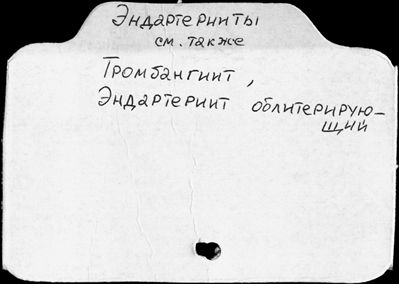 Эндартерииты
см. также
Тромбангиит,
Эндартериит облитерирую-
щий